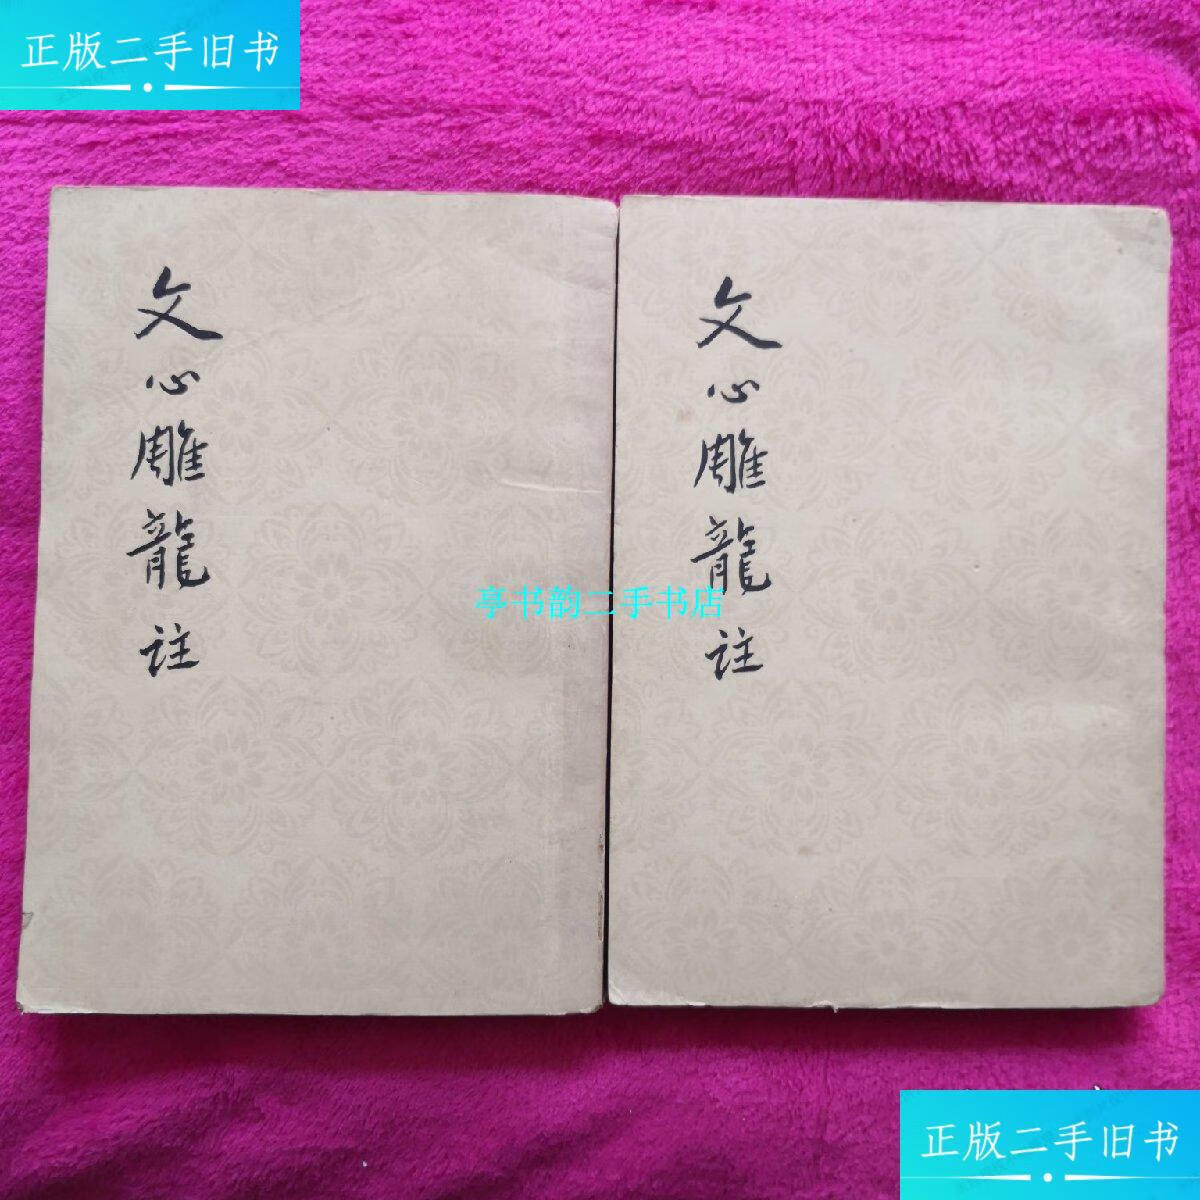 正版二手旧书
文心雕龍註
文心雕龍註
亭书韵二手书店
正版二手旧书